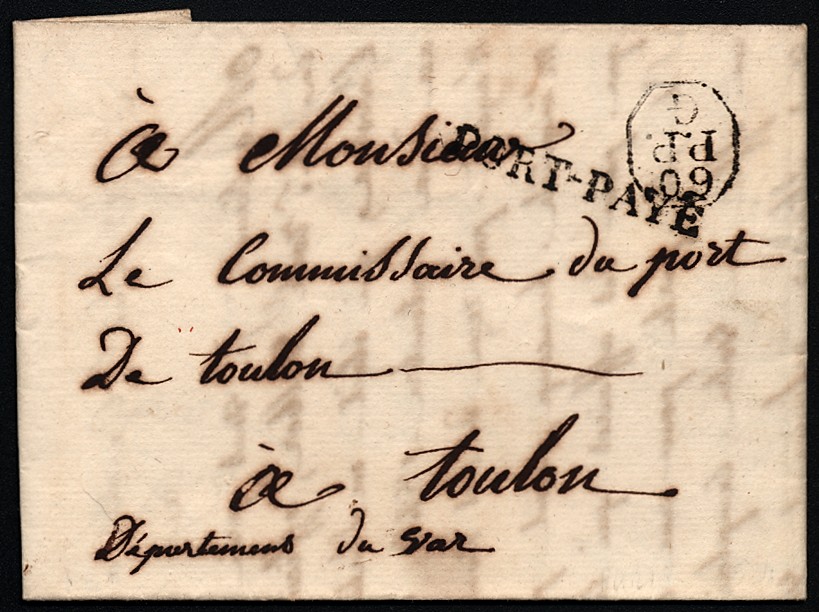 à Monsieur
PORT-PAYÉ
G
P.P.
60
Le Commissaire du port
De toulon
à toulon
Département du var